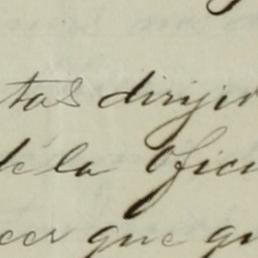 tas dirijir
de la Ofici
cer que qu